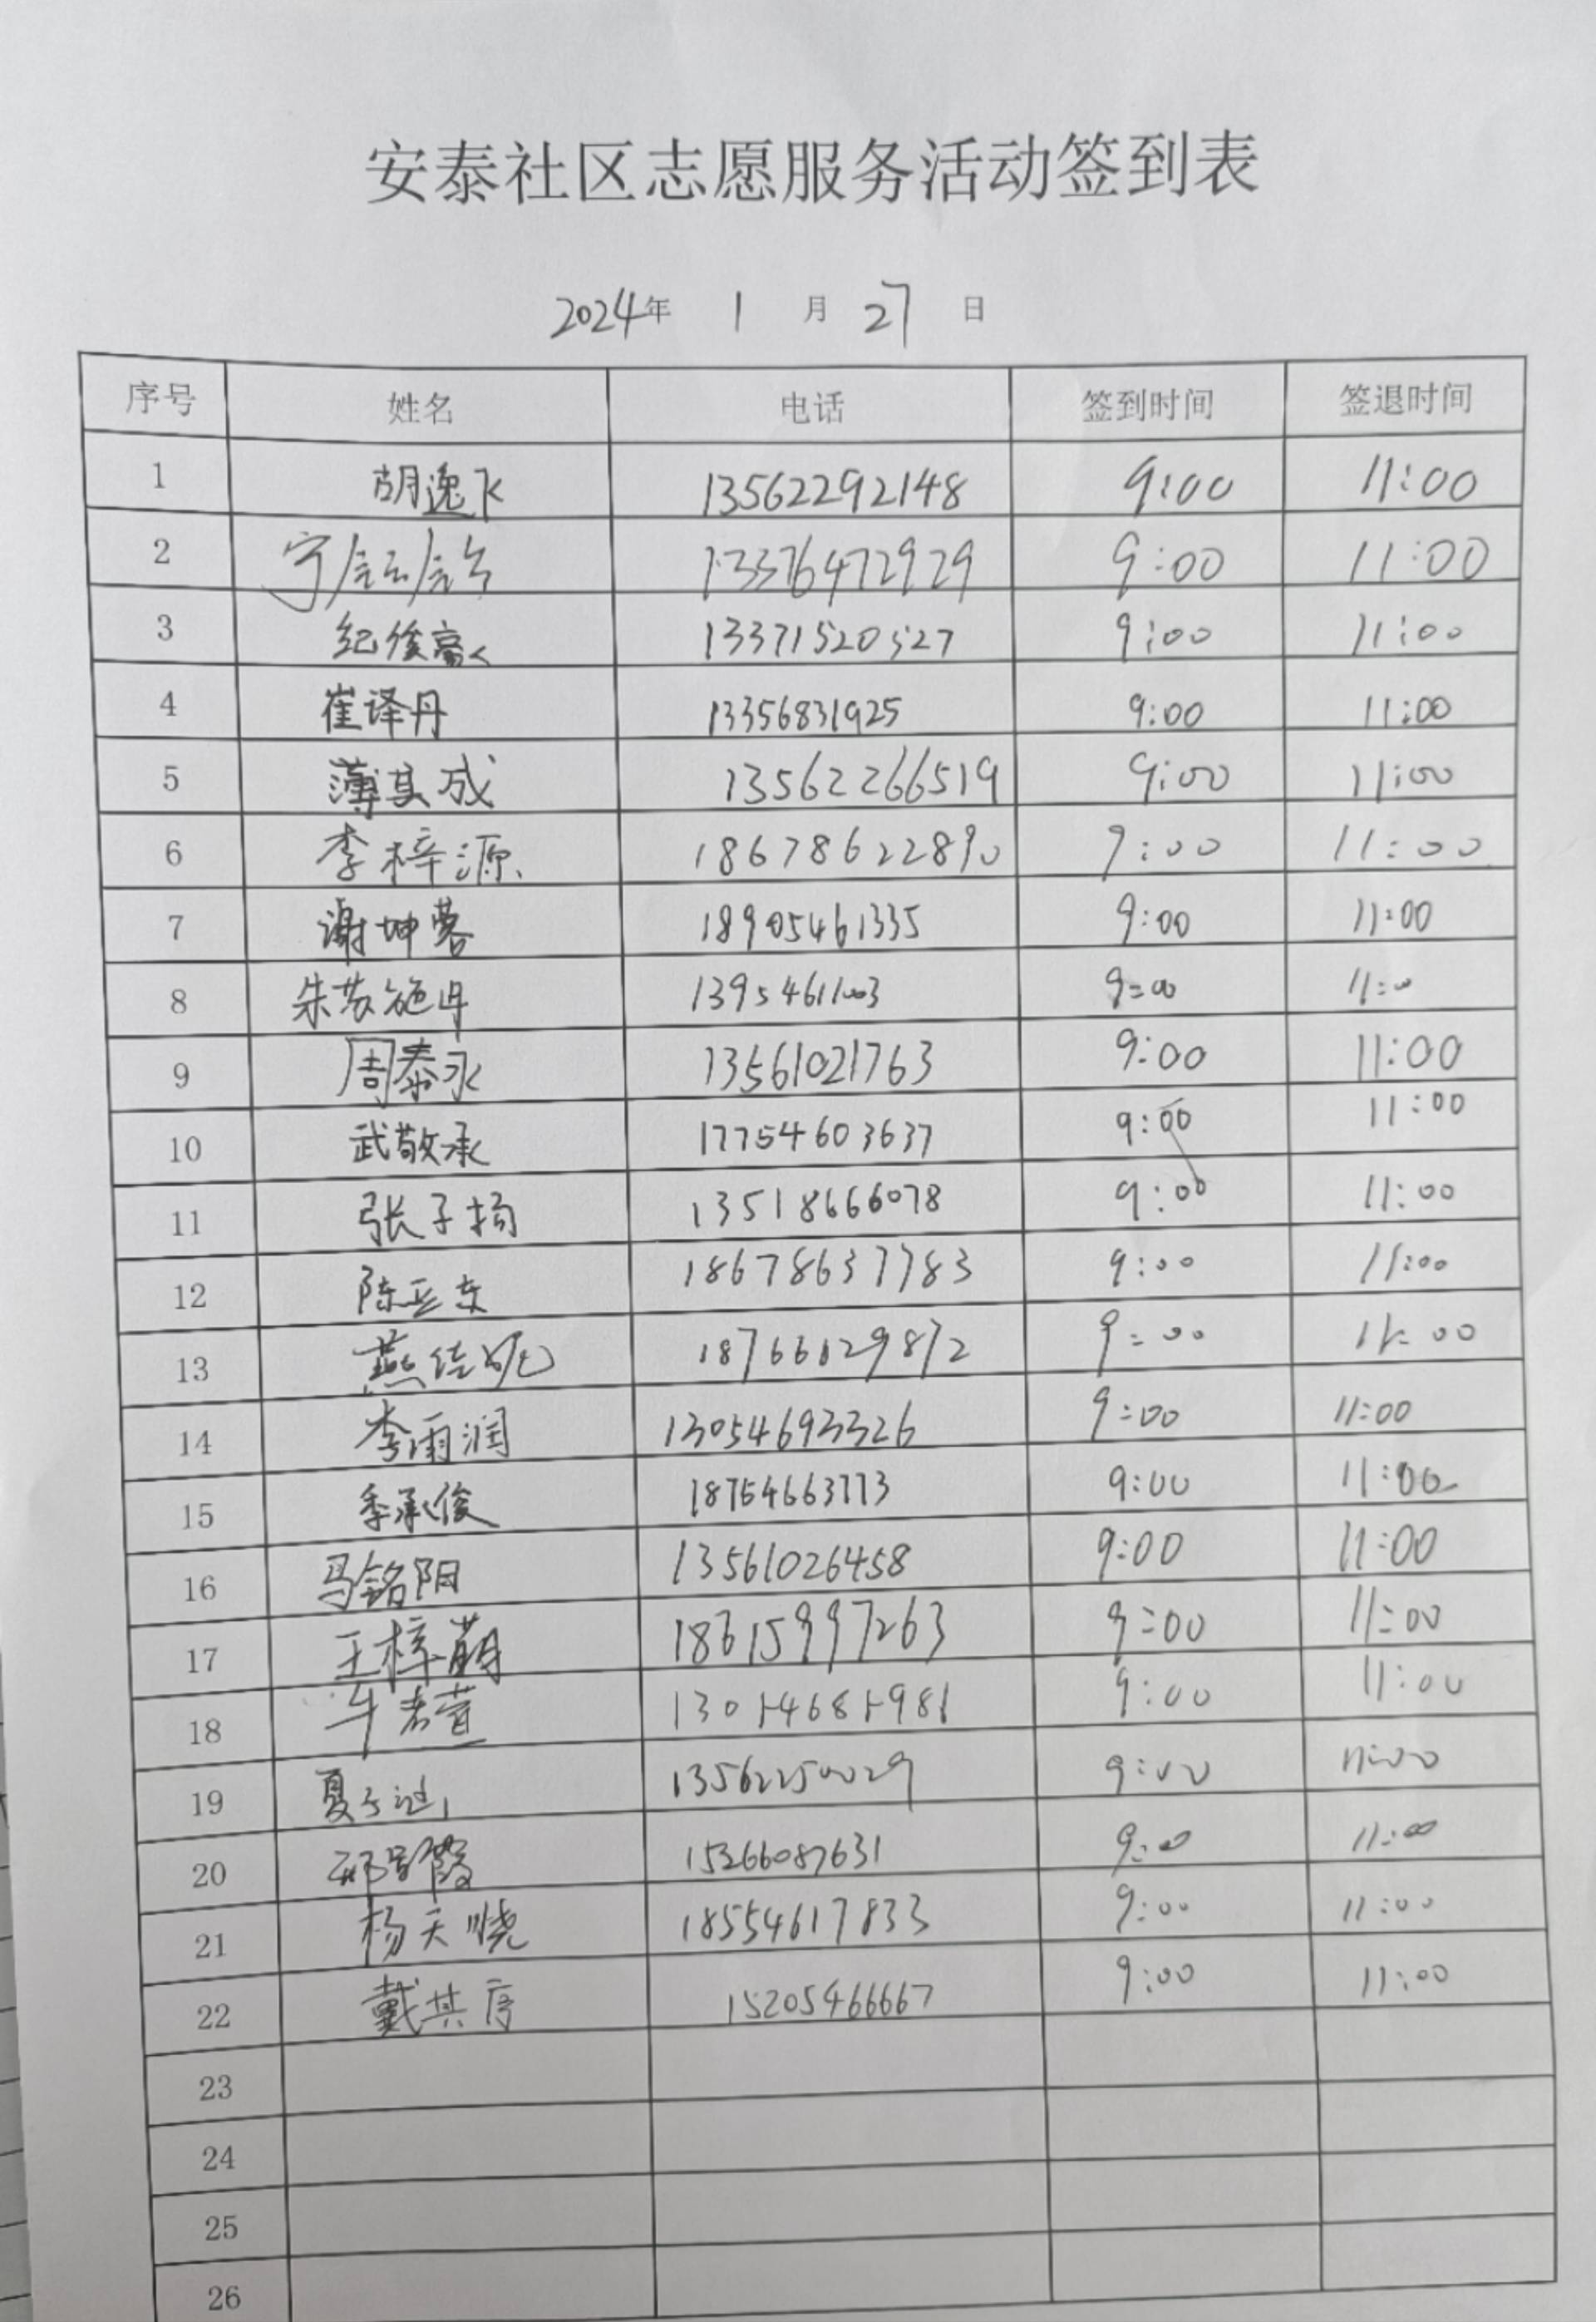 安泰社区志愿服务活动签到表
2024年 1 月 27 日
序号 姓名 电话 签到时间 签退时间
1 胡逸飞 13562292148 9:00 11:00
2 13376472929 9:00 11:00
3 纪俊高 13371520527 9:00 11:00
4 崔译丹 13356831925 9:00 11:00
5 薄其成 13562266519 9:00 11:00
6 李梓源 18678622890 9:00 11:00
7 谢坤蓉 18905461335 9:00 11:00
8 13954611003 9:00 11:00
9 周泰永 13561021763 9:00 11:00
10 武敬承 17754603637 9:00 11:00
11 张子扬 13518666078 9:00 11:00
12 18678637783 9:00 11:00
13 9:00 11:00
14 李雨润 13054693326 9:00 11:00
15 季承俊 18754663773 9:00 11:00
16 马铭阳 13561026458 9:00 11:00
17 王梓萌 18615997263 9:00 11:00
18 9:00 11:00
19 13562250029 9:00 11:00
20 15266087631 9:00 11:00
21 杨天烧 18554617833 9:00 11:00
22 戴其序 15205466667 9:00 11:00
23
24
25
26